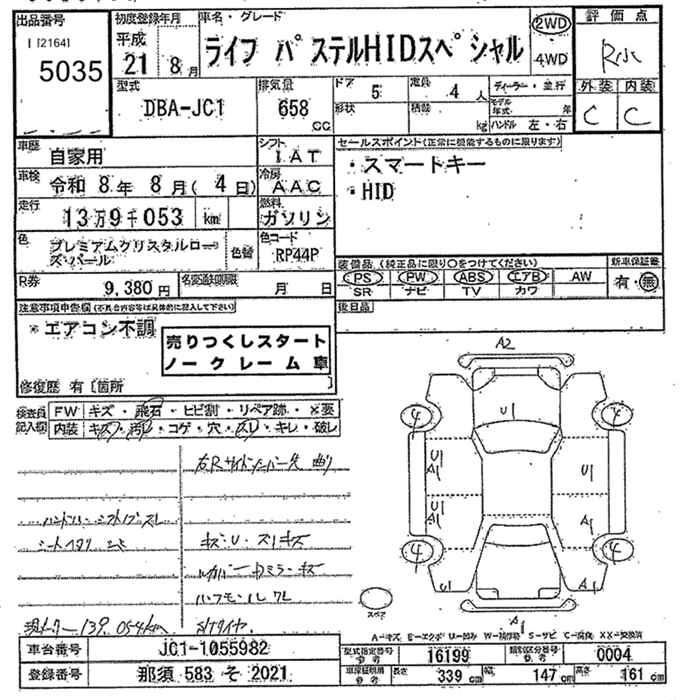 出品番号
[2164]
5035
初度登録年月
平成
21年 8月
車名・グレード
ライフ パステルHIDスペシャル
2WD
4WD
評価点
R小
外装 内装
C C
型式
DBA-JC1
排気量
658
cc
ドア
5
形状
定員
4 人
積載
kg
ディーラー・並行
モデル年式 年
ハンドル 左・右
車歴
自家用
シフト
IAT
車検
令和 8年 8月( 4日)
冷房
AAC
走行
13万9千053 km
燃料
ガソリン
色
プレミアムクリスタルローズ・パール
色替
色コード
RP44P
R券
9,380円
名変期限 月 日
セールスポイント(正常に機能するものに限ります)
・スマートキー
・HID
装備品(純正品に限り○をつけてください)
PS PW ABS エアB AW
SR ナビ TV カワ
新車保証書
有・無
後日品
注意事項申告欄(不具合内容等は具体的に記入して下さい)
*エアコン不調
売りつくしスタート
ノークレーム車
修復歴 有[箇所 ]
検査員
記入欄
FW キズ・飛石・ヒビ割・リペア跡・X要
内装 キズ・汚れ・コゲ・穴・スレ・キレ・破レ
右Rサイドメンバー先 曲り
ハンドル・シフトノブスレ
キズ・U・スリキズ
現メーター139,054km
A2
U1
4 4
U1
A1
U1
U1
A1
A1
4 4
U1 A1
A1
スペア
A-キズ E-エクボ U-凹み W-補修跡 S-サビ C-腐食 XX-交換済
車台番号 JC1-1055982
登録番号 那須 583 そ 2021
型式指定番号
参考
16199
類別区分番号
参考
0004
車庫証明用
参考
長さ 339 cm
幅 147 cm
高さ 161 cm